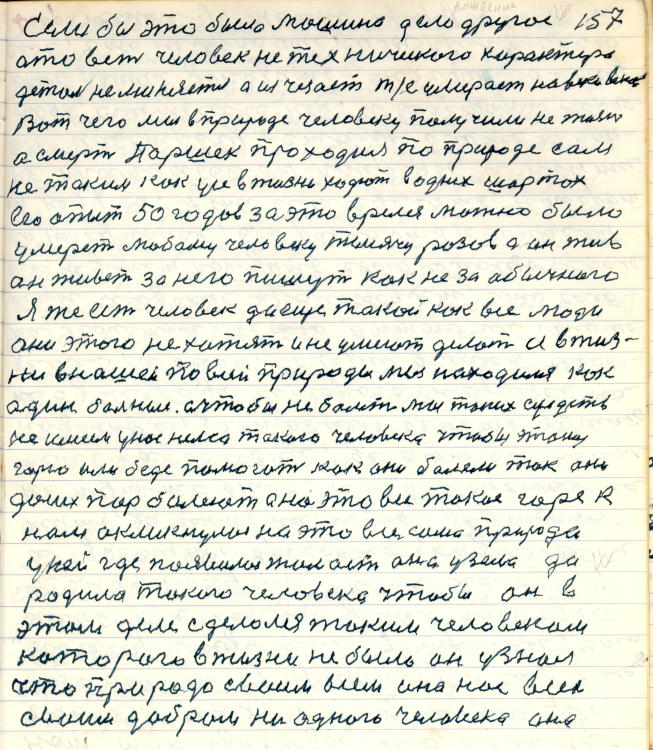 рошение
Если бы это было машина дело другое 157
ато вет человек не техническога характера
детал не миняется а исчезает т/е умирает на веки веков
Вот чего мы в природе человеку получили не жизн
а смерт Паршек проходил по природе сам
не таким как усе в жизни ходют в одних шортах
Его опыт 50 годов за это время можно было
умерет любому человеку тысячу розов а он жив
он живет за него пишут как не за обычного
Я же ест человек да еще такой как все люди
ани этого не хотят и не умеют делат И в жиз-
ни в нашей по всей природи мы находимя как
адин балныи. а чтобы не болет мы таких средств
не имеем у нас нелса такого человека чтобы этому
горю или беде помогат как они балели так они
до сих пор балеют а на это все такое горе к
нам акликнулас на это все, сама природа
у ней где, поевилас жалост она узела да
родила такого человека чтобы он в
этом деле сделолся таким человеком
которого в жизни не было он узнал
что природа своим всем она нас всех
своим добром ни одного человека она